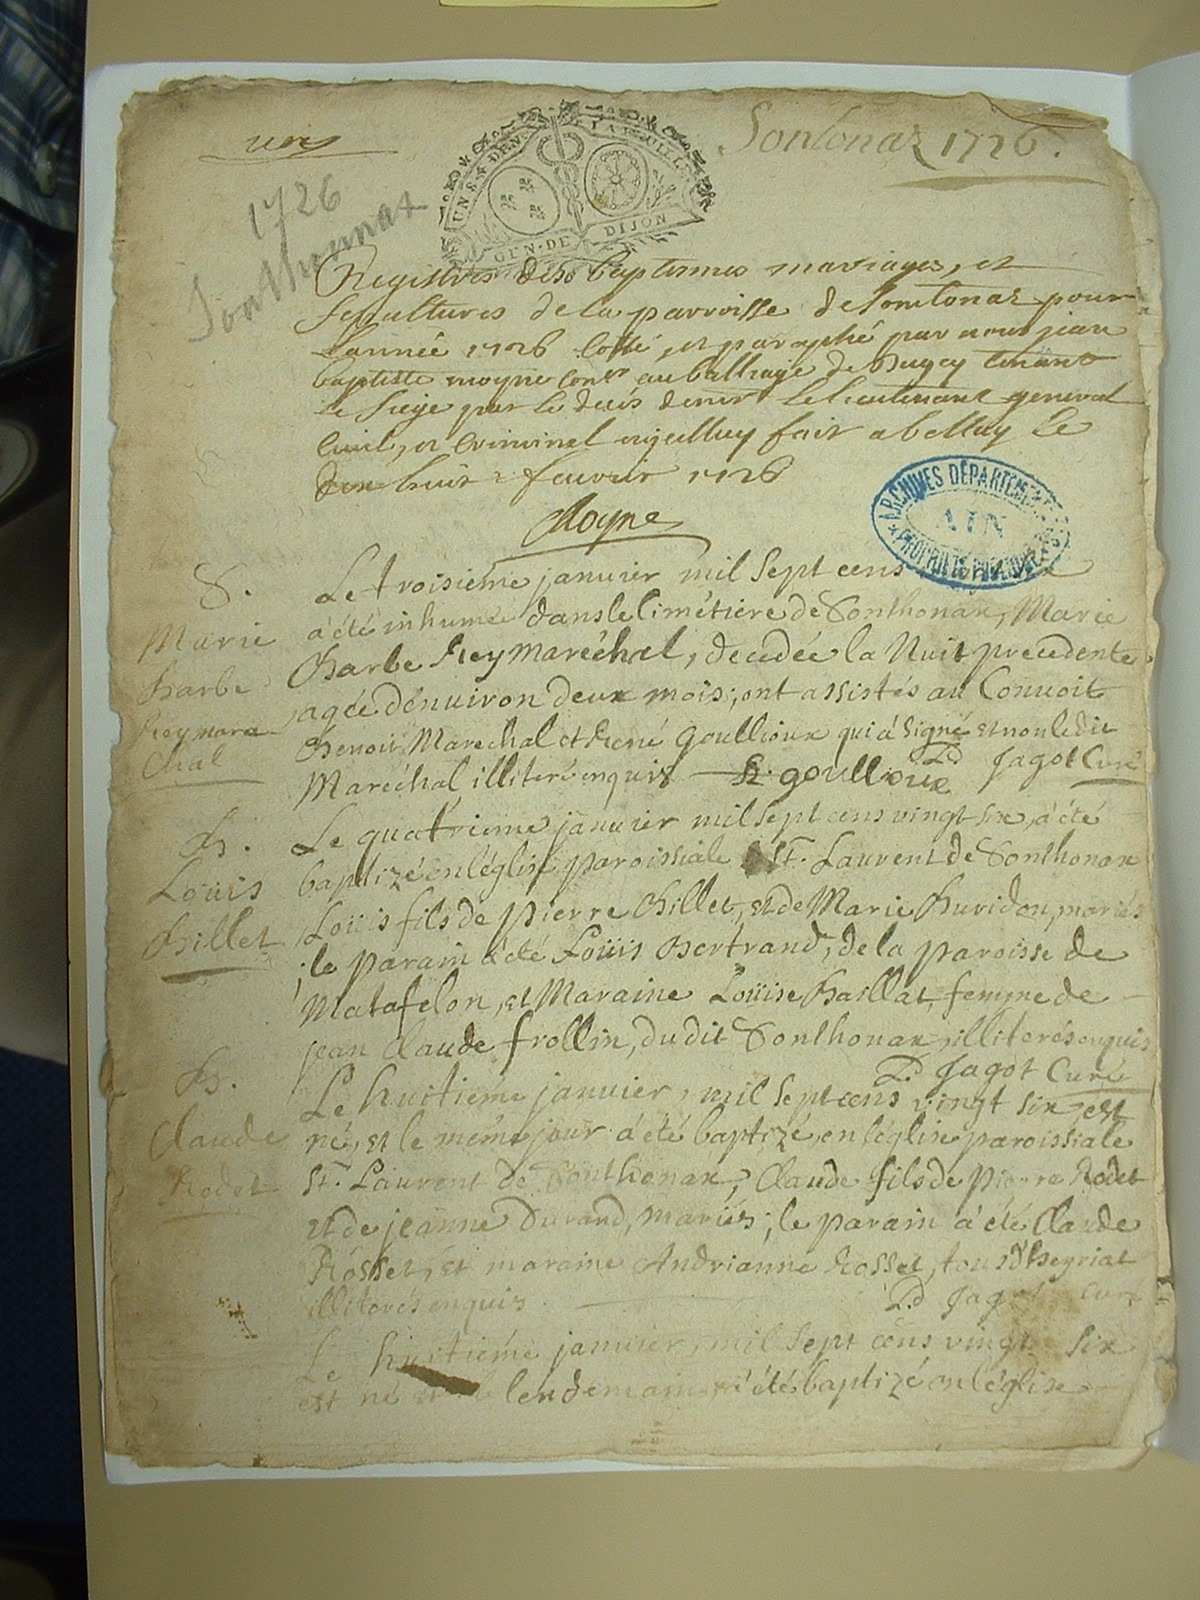 Sontonaz 1726.
UN S. 4 DEN. LA FEUILLE
GEN. DE DIJON
1726
Sonthonnax
Registres des baptemes mariages, et
sepultures de la parroisse de Sontonaz pour
lannée 1726 cotté, et paraphé par nous jean
baptiste moyne conr au balliage de Bugey tenant
le siege par le decés de mr le lieutenant general
civil, et criminel fait a belley le
dix huit fevrier 1726
Moyne
ARCHIVES DÉPARTEMENTALES
AIN
PROPRIÉTÉ PUBLIQUE
S.
Marie
Barbe
Rey mare
chal
Le troisiéme janvier mil sept cens
a été inhumé dans le cimétiére de Sonthonax, Marie
Barbe Rey maréchal, decedée la Nuit precedente
agée dénuiron deux mois; ont assistés au Convoit
Benoit Marechal et René goullioux qui a signé et non le dit
Maréchal illiteré enquis R. goullioux Ld Jagot Curé
B.
Loüis
Billet
Le quatriéme janvier mil sept cens vingt six, a été
baptizé en léglise paroissiale St. Laurent de Sonthonax
Loüis fils de pierre Billet, et de Marie Buridon, mariés
; le parain a été Loüis Bertrand, de la paroisse de
Matafelon, et Maraine Loüise Baillat, femme de
jean Claude frollin, du dit Sonthonax, illiterés enquis
Ld Jagot Curé
B.
Claude
Rodet
Le huitiéme janvier, mil sept cens vingt six est
né, et le méme jour a été baptizé, en léglise paroissiale
St. Laurent de Sonthonax, Claude fils de pierre Rodet
et de jeanne Durand, mariés; le parain a été Claude
Rosset, et maraine Andrianne Rosset, tous d'heyriat
illiterés enquis Ld Jagot Curé
Le huitiéme janvier, mil sept cens vingt six
est né et le lendemain, a été baptizé en léglise